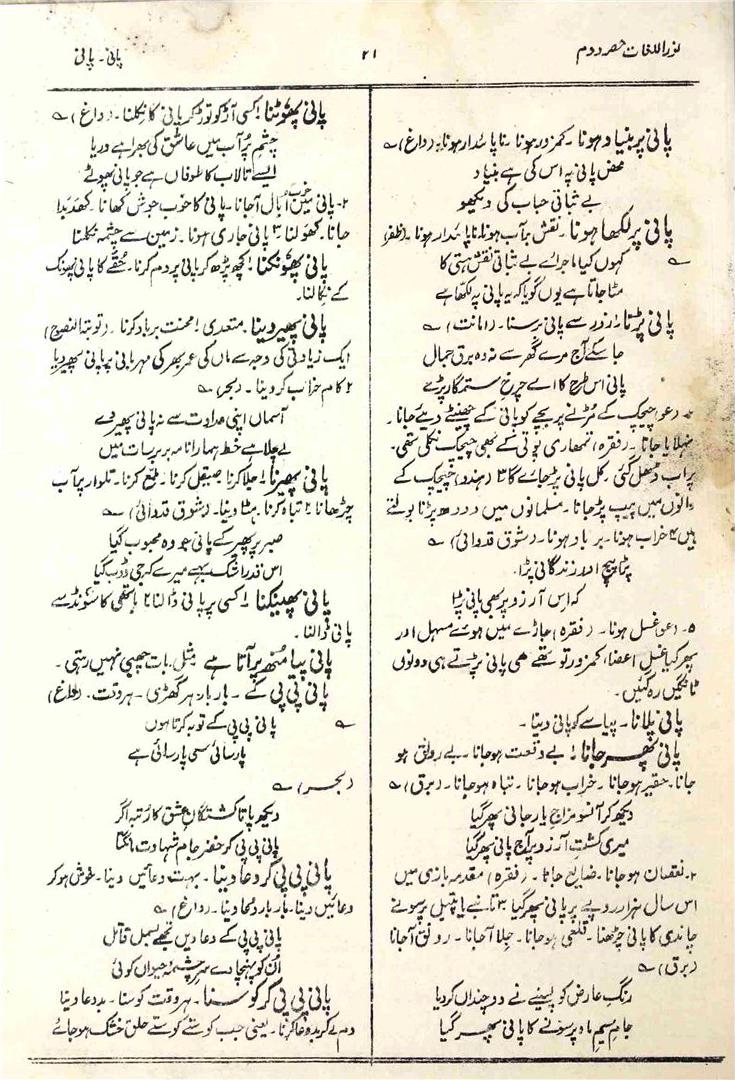 نور اللغات حصہ دوم
۲۱
پانی۔ پانی
پانی پر بنیاد ہونا۔ کمزور ہونا۔ ناپائدار ہونا۔ (داغ) ؎
محض پانی پہ اس کی ہے بنیاد
بے ثباتی حباب کی دیکھو
پانی پر لکھا ہونا۔ نقش بر آب ہونا، ناپائدار ہونا۔ (ظفر)
؎ کہوں کیا ماجرا اے بے ثباتی نقش ہستی کا
مٹا جاتا ہے یوں گویا کہ یہ پانی پہ لکھا ہے
پانی پڑنا۱ زور سے پانی برسنا۔ (امانت) ؎
جا سکے آج مرے گھر سے نہ وہ برق جمال
پانی اس طرح کا اے چرخ ستمگار پڑے
۲۔ (عو) چیچک کے مُڑنے پر بچے کو پانی کے چھینٹے دیئے جانا۔
نہلایا جانا۔ (فقرہ) تمھاری پوتی کے بھی چیچک نکلی تھی۔
پر اب ڈھل گئی۔ کل پانی پڑ جائے گا ۳ (ہندو) چیچک کے
دانوں میں پیپ پڑ جانا۔ مسلمانوں میں دودھ پڑنا بولتے
ہیں ۴ خراب ہونا۔ برباد ہونا۔ (شوق قدوائی) ؎
پڑا پیچ اور زندگانی پڑا۔
کہ اس آرزو پر بھی پانی پڑا
۵۔ (عو) غسل ہونا۔ (فقرہ) جاڑے میں ہوئے مسہل اور
پھر کیا غسل اعضا، کمزور تو تھے ہی پانی پڑتے ہی دونوں
ٹانگیں رہ گئیں۔
پانی پلانا۔ پیاسے کو پانی دینا۔
پانی پھر جانا۱ بے وقعت ہو جانا۔ بے رونق ہو
جانا۔ حقیر ہو جانا۔ خراب ہو جانا۔ تباہ ہو جانا۔ (برق) ؎
دیکھ کر آنسو مزاج یار جانی پھر گیا
میری کشت آرزو پر آج پانی پھر گیا
۲۔ نقصان ہو جانا۔ ضایع جانا۔ (فقرہ) مقدمہ بازی میں
اس سال ہزار روپے پر پانی پھر گیا ۳ تانبے یا پیتل پر سونے
چاندی کا پانی چڑھنا۔ قلعی ہو جانا۔ جلا آجانا۔ رونق آجانا
(برق) ؎
رنگ عارض کو پسینے نے دو چنداں کر دیا
جام سیم ماہ پر سونے کا پانی پھر گیا
پانی پھوٹنا۱ کسی آڑ کو توڑ کر پانی کا نکلنا۔ (داغ) ؎
چشم پُر آب میں عاشق کی بھرا ہے دریا
ایسے تالاب کا طوفاں ہے جو پانی پھوٹے
۲۔ پانی میں خوب اُبال آجانا۔ پانی کا خوب جوش کھانا۔ کھدبدا
جانا۔ کھولنا ۳ پانی جاری ہونا۔ زمین سے چشمہ نکلنا
پانی پھونکنا۱ کچھ پڑھ کر پانی پر دم کرنا۔ حُقّے کا پانی پھونک
کے نکالنا۔
پانی پھیر دینا۔ متعدی۱ محنت برباد کرنا۔ (توبتہ النصوح)
ایک زیادتی کی وجہ سے ماں کی عمر بھر کی مہربانی پر پانی پھیر دیا
۲ کام خراب کر دینا۔ (بحر) ؎
آسماں اپنی عداوت سے نہ پانی پھیر دے
لے چلا ہے خط ہمارا نامہ بر برسات میں
پانی پھیرنا۱ جلا کرنا صیقل کرنا۔ ملمّع کرنا۔ تلوار پر آب
چڑھانا ۲ تباہ کرنا۔ مٹا دینا۔ (شوق قدوائی) ؎
صبر پر پھیر کے پانی جو وہ محبوب گیا
اس قدر اشک بہے میرے کہ جی ڈوب گیا
پانی پھینکنا۱ کسی پر پانی ڈالنا ۲ ہاتھی کا سُونڈ سے
پانی ڈالنا۔
پانی پیا مُنھ پر آتا ہے مثل۔ بات چھپی نہیں رہتی۔
پانی پی پی کے۔ بار بار۔ ہر گھڑی۔ ہر وقت۔ (داغ)
؎ پانی پی پی کے توبہ کرتا ہوں
پارسائی سی پارسائی ہے
(بحر) ؎
دیکھ پاتا کشتگان عشق کا رتبہ اگر
پانی پی پی کر خضر جام شہادت مانگتا
پانی پی پی کر دعا دینا۔ بہت دعائیں دینا۔ خوش ہو کر
دعائیں دینا۔ بار بار دعا دینا۔ (داغ) ؎
پانی پی پی کے دعا دیں تجھے بسمل قاتل
اُن کو پہنچا دے سر چشمۂ حیواں کوئی
پانی پی پی کر کوسنا۔ ہر وقت کوسنا۔ بددعا دینا
دم لے کر بددعا کرنا۔ یعنی جب کوستے کوستے حلق خشک ہو جائے